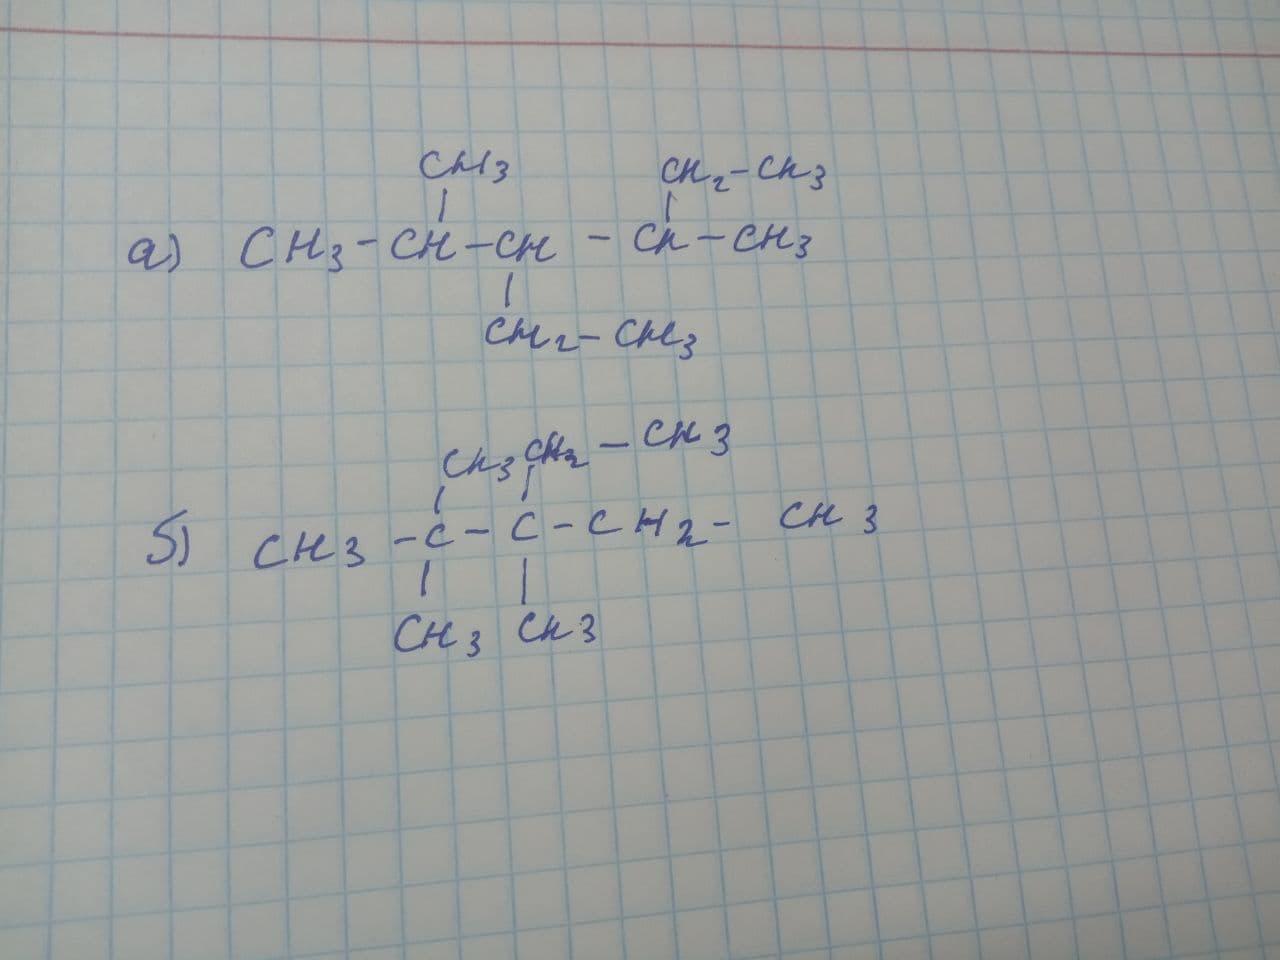 CH3 CH2-CH3
а) CH3-CH-CH - CH-CH3
CH2-CH3
CH3 CH2-CH3
б) CH3-C-C-CH2-CH3
CH3 CH3